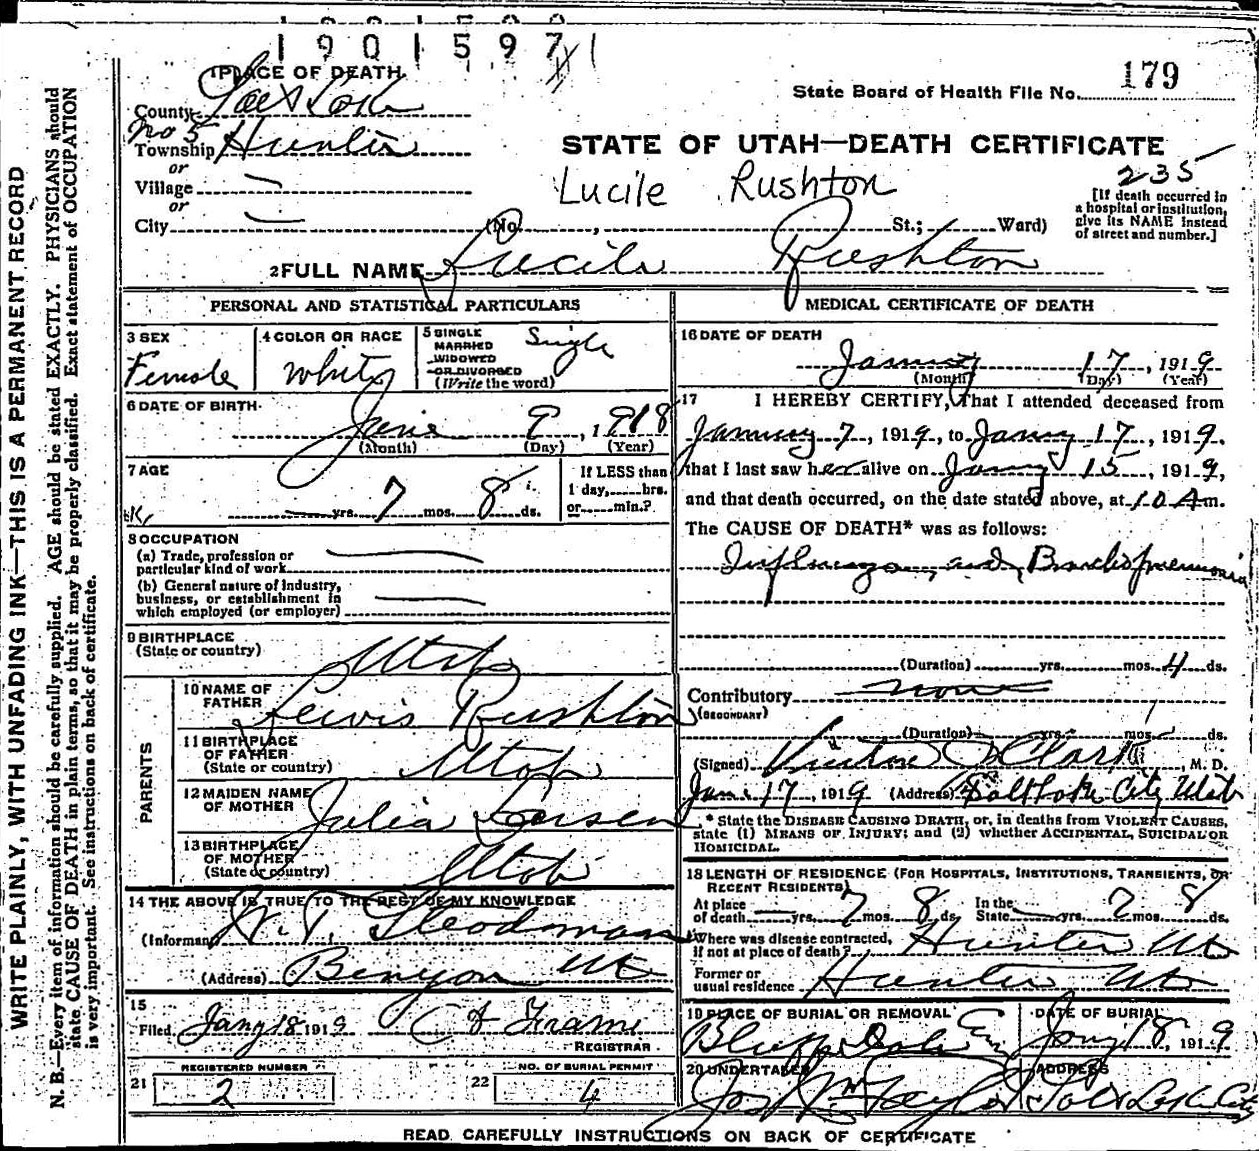 1901597
1 PLACE OF DEATH
County Salt Lake
State Board of Health File No. 179
No 5
Township Hunter
or
Village
or
City
STATE OF UTAH—DEATH CERTIFICATE
Lucile Rushton
235
[If death occurred in
a hospital or institution,
give its NAME instead
of street and number.]
(No. , St.; Ward)
2 FULL NAME Lucile Rushton
PERSONAL AND STATISTICAL PARTICULARS
3 SEX
Female
4 COLOR OR RACE
White
5 SINGLE
MARRIED
WIDOWED
OR DIVORCED
(Write the word)
Single
6 DATE OF BIRTH
June 9, 1918
(Month) (Day) (Year)
7 AGE
yrs. 7 mos. 8 ds.
If LESS than
1 day, hrs.
or min.?
8 OCCUPATION
(a) Trade, profession or
particular kind of work
(b) General nature of industry,
business, or establishment in
which employed (or employer)
9 BIRTHPLACE
(State or country)
Utah
PARENTS
10 NAME OF
FATHER
Lewis Rushton
11 BIRTHPLACE
OF FATHER
(State or country)
Utah
12 MAIDEN NAME
OF MOTHER
Julia Larsen
13 BIRTHPLACE
OF MOTHER
(State or country)
Utah
14 THE ABOVE IS TRUE TO THE BEST OF MY KNOWLEDGE
(Informant)
(Address) Benyon Ut
15
Filed Jany 18 1919 Frame
REGISTRAR
REGISTERED NUMBER
21 2
NO. OF BURIAL PERMIT
22 4
MEDICAL CERTIFICATE OF DEATH
16 DATE OF DEATH
January 17, 1919
(Month) (Day) (Year)
17 I HEREBY CERTIFY, That I attended deceased from
January 7, 1919, to Jany 17, 1919.
that I last saw her alive on Jany 15, 1919,
and that death occurred, on the date stated above, at 10 A m.
The CAUSE OF DEATH* was as follows:
Influenza and Bronchopneumonia
(Duration) yrs. mos. 4 ds.
Contributory none
(SECONDARY)
(Duration) yrs. mos. ds.
(Signed) Clark, M. D.
Jan. 17, 1919 (Address) Salt Lake City Utah
* State the DISEASE CAUSING DEATH, or, in deaths from VIOLENT CAUSES,
state (1) MEANS OF INJURY; and (2) whether ACCIDENTAL, SUICIDAL OR
HOMICIDAL.
18 LENGTH OF RESIDENCE (FOR HOSPITALS, INSTITUTIONS, TRANSIENTS, OR
RECENT RESIDENTS)
At place
of death yrs. 7 mos. 8 ds. In the
State yrs. 7 mos. 8 ds.
Where was disease contracted,
if not at place of death? Hunter Ut
Former or
usual residence Hunter Ut
19 PLACE OF BURIAL OR REMOVAL
Bluff Dale Cem
DATE OF BURIAL
Jany 18, 1919
20 UNDERTAKER
Jos Wm Taylor
ADDRESS
Salt Lake City
READ CAREFULLY INSTRUCTIONS ON BACK OF CERTIFICATE
WRITE PLAINLY, WITH UNFADING INK—THIS IS A PERMANENT RECORD
N. B.—Every item of information should be carefully supplied. AGE should be stated EXACTLY. PHYSICIANS should
state CAUSE OF DEATH in plain terms, so that it may be properly classified. Exact statement of OCCUPATION
is very important. See instructions on back of certificate.